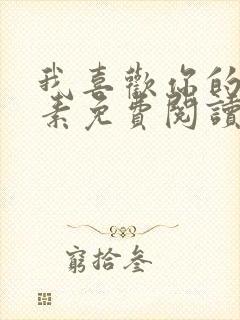 我喜歡你的
素免費閱讀
窮拾叁